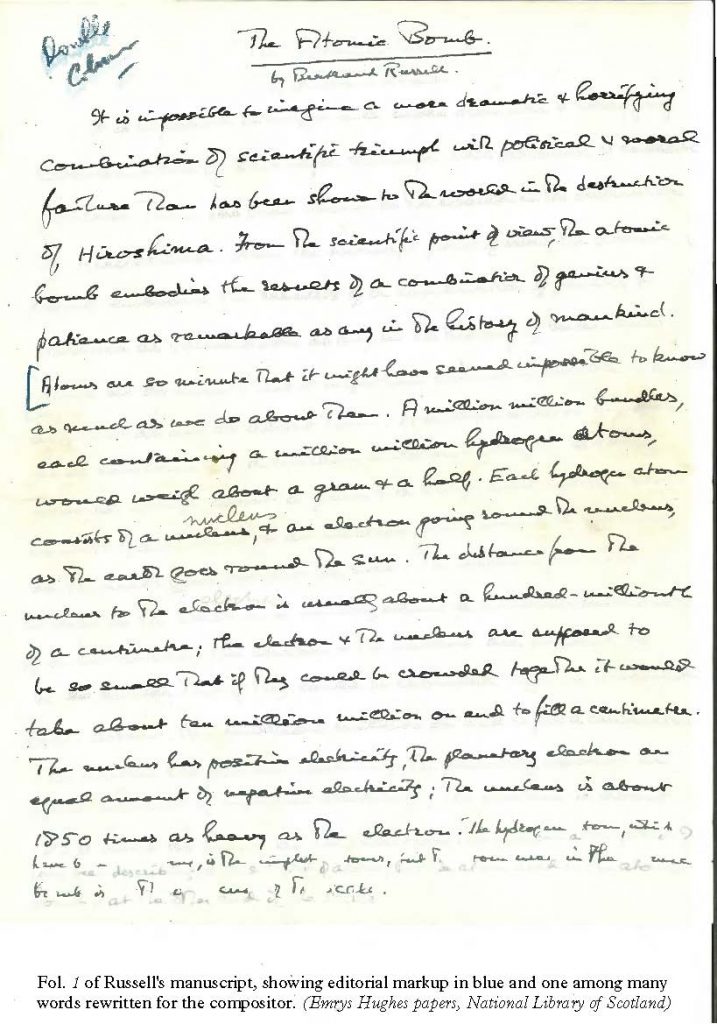 Double
Column
The Atomic Bomb.
by Bertrand Russell.
It is impossible to imagine a more dramatic & horrifying
combination of scientific triumph with political & moral
failure than has been shown to the world in the destruction
of Hiroshima. From the scientific point of view, the atomic
bomb embodies the results of a combination of genius &
patience as remarkable as any in the history of mankind.
[Atoms are so minute that it might have seemed impossible to know
as much as we do about them. A million million bundles,
each containing a million million hydrogen atoms,
would weigh about a gram & a half. Each hydrogen atom
nucleus
consists of a nucleus, & an electron going round the nucleus,
as the earth goes round the sun. The distance from the
nucleus to the electron is usually about a hundred-millionth
of a centimetre; the electron & the nucleus are supposed to
be so small that if they could be crowded together it would
take about ten million million on end to fill a centimetre.
The nucleus has positive electricity, the planetary electron an
equal amount of negative electricity; the nucleus is about
1850 times as heavy as the electron. The hydrogen atom, which
is the simplest in the
bomb is
Fol. 1 of Russell's manuscript, showing editorial markup in blue and one among many
words rewritten for the compositor. (Emrys Hughes papers, National Library of Scotland)